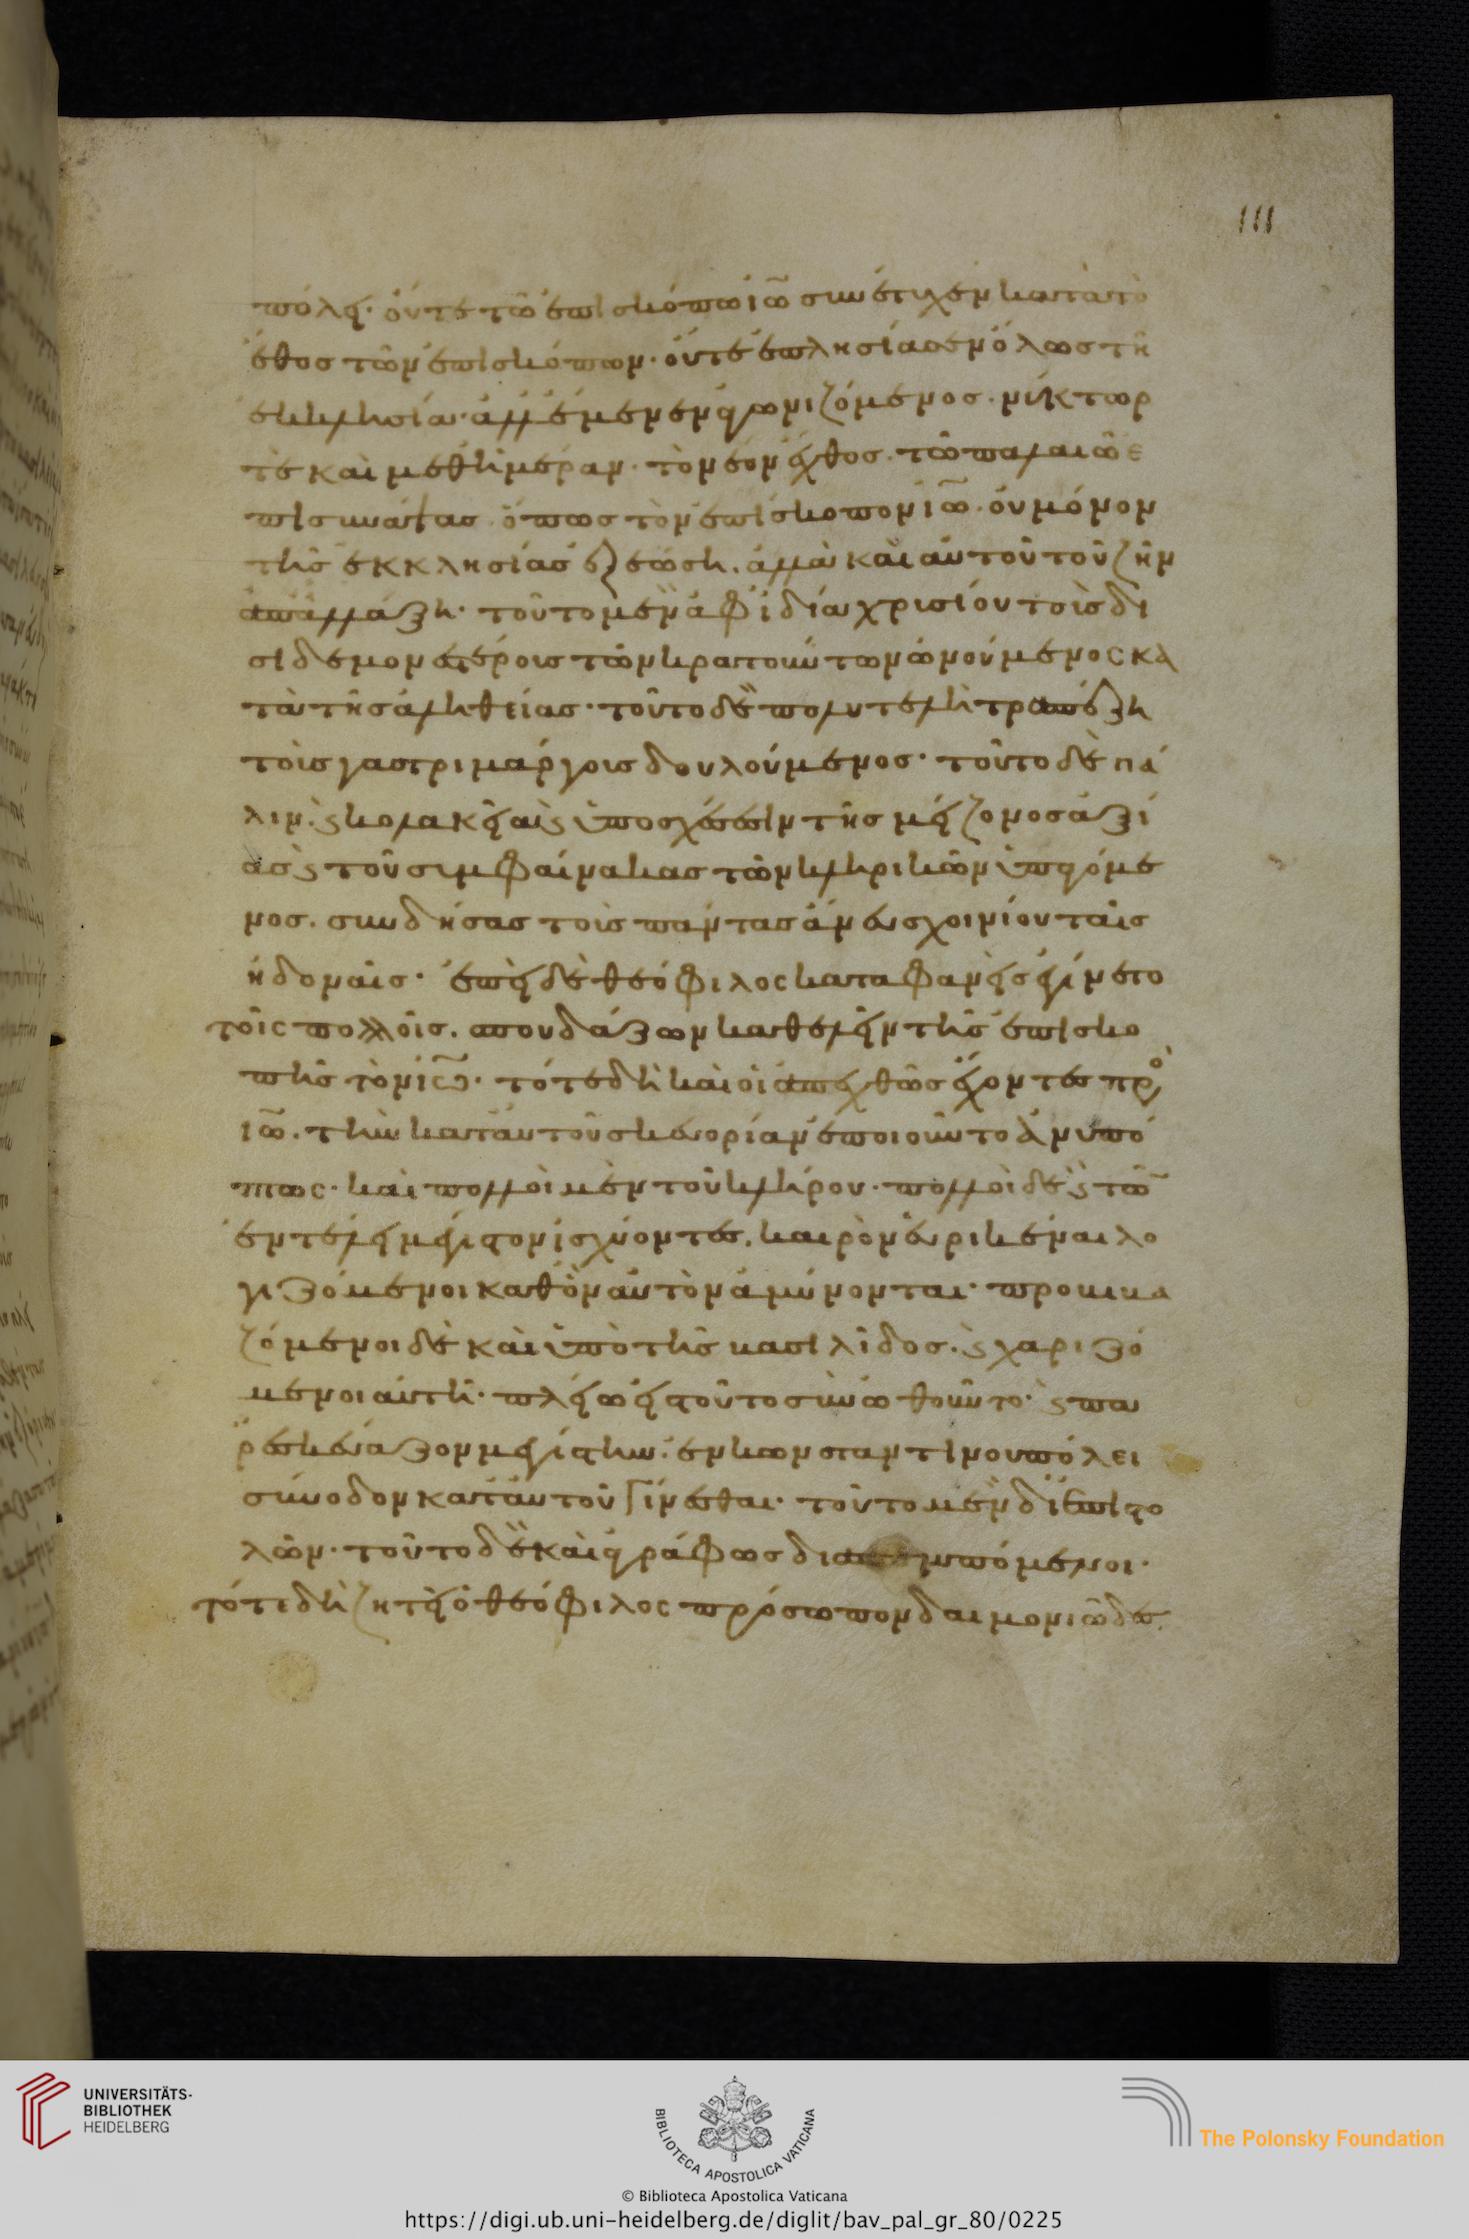 111
πόλει· οὔτε τῷ ἐπισκόπῳ ἰῶ συνέτυχεν κατὰ τὸ
ἔθος τῶν ἐπισκόπων· οὔτε ἐπλησίασεν ὅλως τῆ
ἐκκλησία· ἀλλ' ἔμενεν ἀγωνιζόμενος· νύκτωρ
τὲ καὶ μεθημέραν· τὸν ἔχθος· τῶ παλαιῶ ἐ
πισυνάψας ὅπως τὸν ἐπίσκοπον ἰῶ· οὐ μόνον
τῆς ἐκκλησίας ἐξεώση. ἀλλὰ καὶ αὐτοῦ τοῦ ζῆν
ἀπαλλάξη· τοῦτο μὲν ἀφιδία χρυσίου τοῖς δι
σὶ δεμονεστέροις τῶν κρατούντων ὠνούμενος κα
τὰ τῆς ἀληθείας· τοῦτο δὲ πολυτελῆ τραπέζη
τοῖς γαστριμάργοις δουλούμενος· τοῦτο δὲ πά
λιν· ϗ κολακεῖαις ϗ ὑποσχέσεσιν τῆς μείζονος ἀξί
ας ϗ τοὺς
νος. συνδήσας τοὺς πάντας ἄνευ σχοινίου ταῖς
ἡδοναῖς· ἐπεὶ δὲ θεόφιλος καταφανὴς ἐγίνετο
τοῖς πολλοῖς. σπουδάζων καθελεῖν τῆς ἐπισκο
πῆς τὸν ἰῶ· τότε δὴ καὶ οἱ ἀπεχθῶς ἔχοντες πρὸ
ἰῶ. τὴν κατ' αὐτοῦ σκευορίαν ἐποιοῦντο ἀνυπό
πτως· καὶ πολλοὶ μὲν τοῦ κλήρου· πολλοὶ δὲ ϗ τῶ
ἐν τέλει μέγιστον ἰσχύοντες, καιρὸν εὑρικέναι λο
γιζόμενοι καθ' ὃν αὐτὸν ἀμύνονται· προβιβα
ζόμενοι δὲ καὶ ὑπὸ τῆς βασιλίδος. ϗ χαριζό
μενοι αὐτῆ· πλείω εἰς τοῦτο συνωθοῦντο· ϗ πα
ρεσκεύαζον μεγίστην· ἐν κωνσταντίνου πόλει
σύνοδον κατ' αὐτοῦ γίνεσθαι· τοῦτο μὲν δι' ἐπιστο
λῶν· τοῦτο δὲ καὶ ἀγράφως διαπεμπόμενοι·
τότε δὴ ζητεῖ ὁ θεόφιλος πρόσωπον δαιμονιῶδες
UNIVERSITÄTS-
BIBLIOTHEK
HEIDELBERG
BIBLIOTECA APOSTOLICA VATICANA
The Polonsky Foundation
© Biblioteca Apostolica Vaticana
https://digi.ub.uni-heidelberg.de/diglit/bav_pal_gr_80/0225